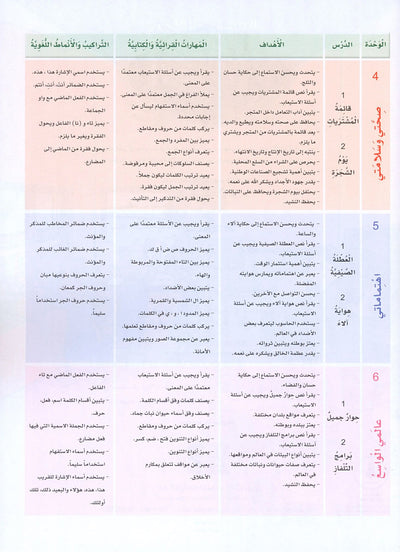 الْوَحْدَة
الدَّرْس
الْأَهْدَاف
الْمَهَارَاتُ الْقِرَائِيَّةُ وَالْكِتَابِيَّةُ
التَّرَاكِيبُ وَالْأَنْمَاطُ اللُّغَوِيَّةُ
4
صحتي وسلامتي
1
قائمة
المشتريات
2
يوم
الشجرة
- يتحدث ويحسن الاستماع إلى حكاية حسان
والثلج.
- يقرأ نص قائمة المشتريات ويجيب عن
أسئلة الاستيعاب.
- يتبين آداب التعامل داخل المتجر.
- يحافظ على صحته وسلامته ويطيع والديه.
- يعد قائمة بالمشتريات من المتجر ويشتري
ما يلزم.
- ينتبه إلى تاريخ الإنتاج وتاريخ الانتهاء.
- يحرص على الشراء من السلع المحلية.
- يتبين أهمية تشجيع الصناعات الوطنية.
- يقدر جهود الأجداد ويشكر الله على نعمه.
- يحتفل بيوم الشجرة ويحافظ على النباتات.
- يحفظ النشيد.
- يقرأ ويجيب عن أسئلة الاستيعاب معتمدًا
على المعنى.
- يملأ الفراغ في الجمل معتمدًا على المعنى.
- يستخدم أسماء الاستفهام ليسأل عن
إجابات محددة.
- يركب كلمات من حروف ومقاطع.
- يميز بين المفرد والجمع.
- يتعرف أنواع الجمع.
- يصنف السلوكات إلى محببة ومرفوضة.
- يعيد ترتيب الكلمات ليكون جملاً.
- يعيد ترتيب الجمل ليكون فقرة.
- يحول فقرة من التذكير إلى التأنيث.
- يستخدم اسمي الإشارة هذا، هذه.
- يستخدم الضمائر أنتَ، أنتِ، أنتم.
- يستخدم الفعل الماضي مع واو
الجماعة.
- يميز تاء و (نا) الفاعل ويحول
الفقرة ويغير ما يلزم.
- يحول فقرة من الماضي إلى
المضارع.
5
اهتماماتي
1
العطلة
الصيفية
2
هواية
آلاء
- يتحدث ويحسن الاستماع إلى حكاية آلاء
والساعة.
- يقرأ نص العطلة الصيفية ويجيب عن
أسئلة الاستيعاب.
- يتبين أهمية استثمار الوقت.
- يعبر عن اهتماماته ويمارس هوايته
المفضلة.
- يحسن التواصل مع الآخرين.
- يقرأ نص هواية آلاء ويجيب عن أسئلة
الاستيعاب.
- يستخدم الحاسوب ليتعرف بعض
الأضداد في العالم.
- يعتز بوطنه ويتبين ثرواته.
- يقدر عظمة الخالق ويشكره على نعمه.
- يقرأ ويجيب عن الأسئلة معتمدًا على
المعنى.
- يميز الحروف ص ض ق ك.
- يميز بين التاء المفتوحة والمربوطة
والهاء.
- يتبين بعض الأضداد.
- يميز ال الشمسية والقمرية.
- يميز المدود ا - و - ي في الكلمات.
- يركب كلمات من حروف ومقاطع تعلمها.
- يعبر عن مجموعة الصور ويتبين مفهوم
الأمانة.
- يستخدم ضمائر المخاطب للمذكر
والمؤنث.
- يستخدم ضمائر الغائب للمذكر
والمؤنث.
- يتعرف الحروف بنوعيها مبان
وحروف الجر كمعان.
- يستخدم حروف الجر استخداماً
سليماً.
6
عالمي الواسع
1
حوار جميل
2
برامج
التلفاز
- يتحدث ويحسن الاستماع إلى حكاية
حسان والفضاء.
- يقرأ نص حوار جميل ويجيب عن أسئلة
الاستيعاب.
- يتعرف مواقع بلدان مختلفة.
- يعتز ببلده وبوطنه.
- يقرأ نص برامج التلفاز ويجيب عن
أسئلة الاستيعاب.
- يتبين أنواع البيئات في العالم ومواقعها.
- يتعرف صفات حيوانات ونباتات مختلفة
في العالم.
- يحفظ النشيد.
- يقرأ ويجيب عن أسئلة الاستيعاب
معتمدًا على المعنى.
- يصنف كلمات وفق أقسام الكلمة.
- يصنف وفق أسماء حيوان نبات جماد.
- يركب كلمات من حروف ومقاطع.
- يميز أنواع التنوين فتح، ضم، كسر.
- يميز أنواع التنوين.
- يعبر عن مواقف تتعلق بمكارم
الأخلاق.
- يستخدم الفعل الماضي مع تاء
الفاعل.
- يتبين أقسام الكلمة اسم، فعل،
حرف.
- يستخدم الجملة الاسمية التي فيها
فعل مضارع.
- يستخدم أسماء الاستفهام
استخداماً سليماً.
- يستخدم أسماء الإشارة للقريب
هذا، هذه، هؤلاء والبعيد ذلك، تلك
أولئك.